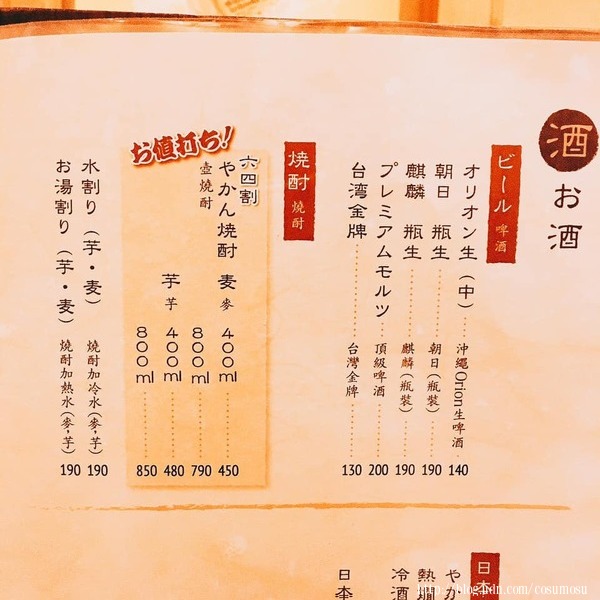 酒
お酒
ビール 啤酒
オリオン生（中） 沖繩Orion生啤酒 140
朝日 瓶生 朝日(瓶裝) 190
麒麟 瓶生 麒麟(瓶裝) 190
プレミアムモルツ 頂級啤酒 200
台湾金牌 台灣金牌 130
焼酎 燒酎
お値打ち!
六四割
やかん焼酎 麦 麥 400ml 450
壺燒酎
800ml 790
芋 芋 400ml 480
800ml 850
水割り（芋・麦） 燒酎加冷水(麥,芋) 190
お湯割り（芋・麦） 燒酎加熱水(麥,芋) 190
日本
やか
熱燗
冷酒
日本